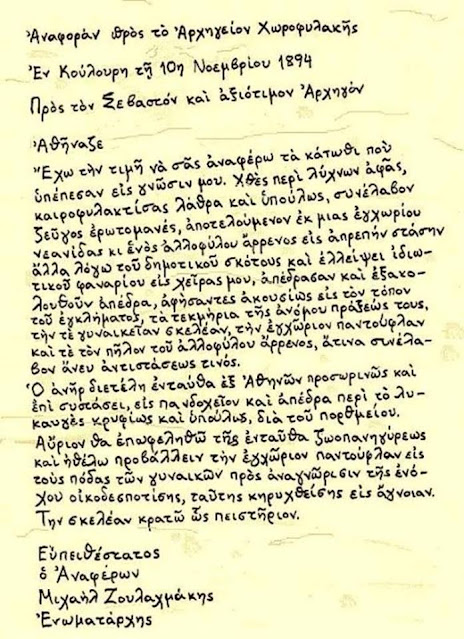 Ἀναφορὰν πρὸς τὸ Ἀρχηγεῖον Χωροφυλακῆς
Ἐν Κούλουρη τῇ 10ῃ Νοεμβρίου 1894
Πρὸς τὸν Σεβαστόν καὶ ἀξιότιμον Ἀρχηγὸν
Ἀθήναζε
Ἔχω τὴν τιμὴ νὰ σᾶς ἀναφέρω τὰ κάτωθι ποὺ
ὑπέπεσαν εἰς γνῶσιν μου. Χθὲς περὶ λύχνων ἁφὰς,
καιροφυλακτίσας λάθρα καὶ ὑπούλως, συνέλαβον
ζεῦγος ἐρωτομανές, ἀποτελούμενον ἐκ μιας ἐγχωρίου
νεανίδας κι ἑνὸς ἀλλοφύλου ἄρρενος εἰς ἀπρεπὴν στάσην
ἀλλα λόγω τοῦ δημοτικοῦ σκότους καὶ ἐλλείψει ἰδιω-
τικοῦ φαναρίου εἰς χεῖρας μου, ἀπέδρασαν καὶ ἐξακο-
λουθοῦν ἀπέδρα, ἀφήσαντες ἀκουσίως εἰς τὸν τόπον
τοῦ ἐγκλήματος, τὰ τεκμήρια τῆς ἀνόμου πράξεώς τους,
τὴν τὲ γυναικεῖαν σκελέαν, τὴν ἐγχώριον παντούφλαν
καὶ τὲ τὸν πῆλον τοῦ ἀλλοφύλου ἄρρενος, ἅτινα συνέλα-
βον ἄνευ ἀντιστάσεως τινός.
Ὁ ἀνὴρ διετέλη ἐνταύθα ἐξ Ἀθηνῶν προσωρινῶς καὶ
ἐπὶ συστάσει, εἰς πανδοχεῖον καὶ ἀπέδρα περὶ τὸ λυ-
καυγὲς κρυφίως καὶ ὑπούλως, διὰ τοῦ πορθμείου.
Αὔριον θα ἐπωφεληθῶ τῆς ἐνταῦθα ζωοπανηγύρεως
καὶ ἤθελω προβάλλειν τὴν ἐγχώριον παντούφλαν εἰς
τοὺς πόδας τῶν γυναικῶν πρὸς ἀναγνώρισιν τῆς ἐνό-
χου οἰκοδεσποτίσης, ταύτης κηρυχθείσης εἰς ἄγνοιαν.
Την σκελέαν κρατῶ ὡς πειστήριον.
Εὐπειθέστατος
ὁ Ἀναφέρων
Μιχαὴλ Ζουλαχμάκης
Ἐνωματάρχης